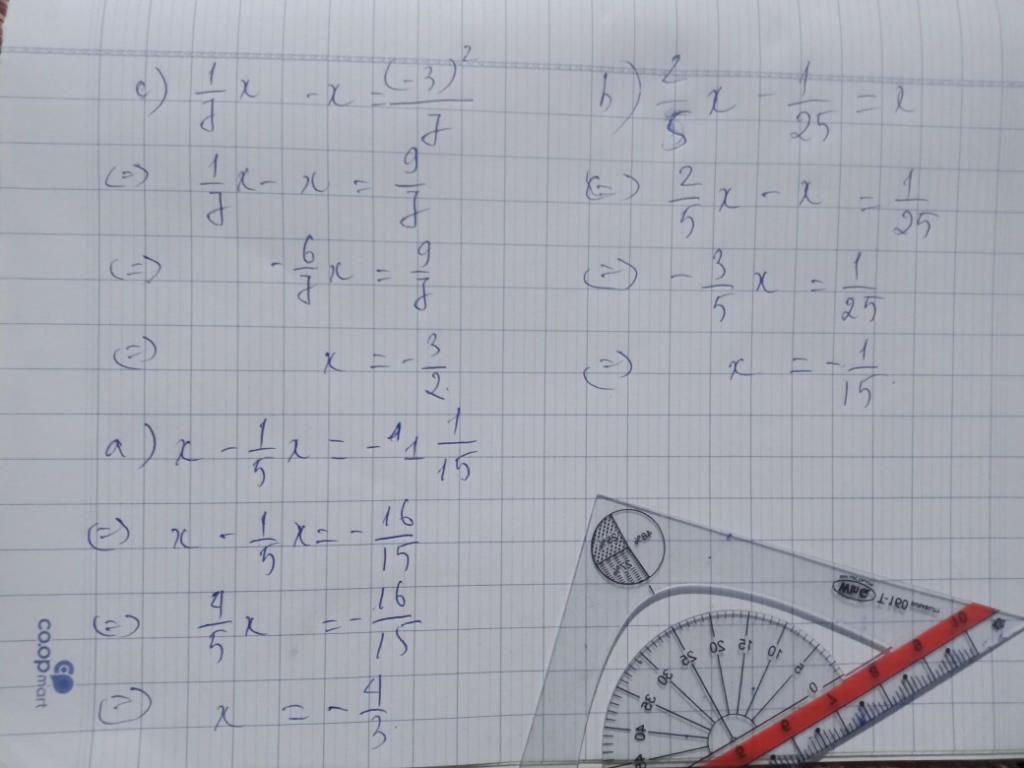 c) 1/7 x - x = (-3)²/7
<=> 1/7 x - x = 9/7
<=> - 6/7 x = 9/7
<=> x = - 3/2.
b) 2/5 x - 1/25 = x
<=> 2/5 x - x = 1/25
<=> - 3/5 x = 1/25
<=> x = - 1/15.
a) x - 1/5 x = - 1 1/15
<=> x - 1/5 x = - 16/15
<=> 4/5 x = - 16/15
<=> x = - 4/3.
co.opmart
WinQ T-160
0 5 10 15 20 25 30 35 40
10 9 8 7 6 5